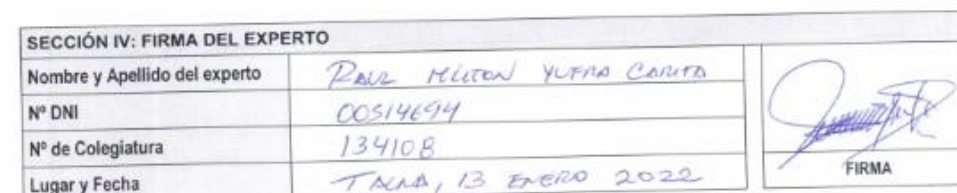 SECCIÓN IV: FIRMA DEL EXPERTO
Nombre y Apellido del experto RAUL MILTON YUFRA CARITA
Nº DNI 00514694
Nº de Colegiatura 134108
Lugar y Fecha TACNA, 13 ENERO 2022
FIRMA